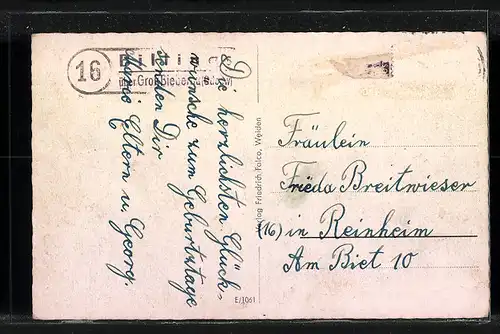 16
über Groß Bieberau (Odenw)
Die herzlichsten Glück-
wünsche zum Geburtstage
senden Dir
Deine Eltern u. Georg.
Verlag Friedrich Falco, Weiden
E/1061
Fräulein
Frieda Breitwieser
(16) in Reinheim
Am Biet 10